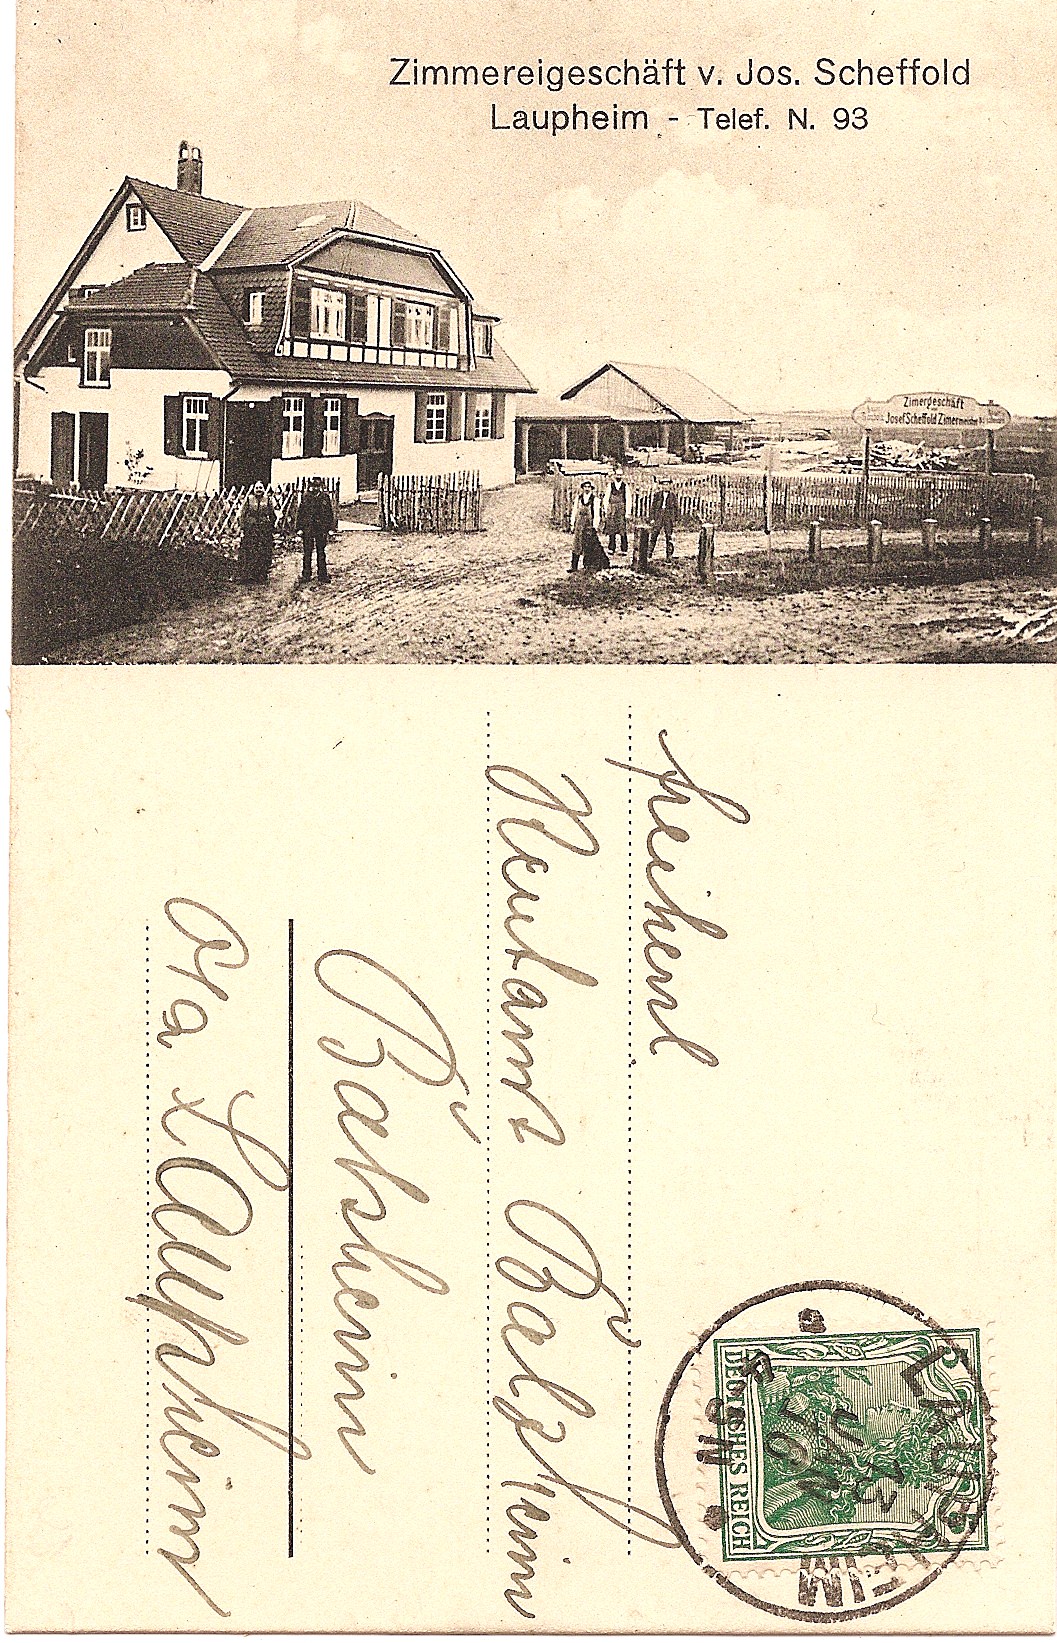 Zimmereigeschäft v. Jos. Scheffold
Laupheim - Telef. N. 93
Zimergeschäft
Josef Scheffold Zimermeister
freiherrl
Rentamt Bälzheim
Ota Laupheim
LAUPHEIM
DEUTSCHES REICH
5
5